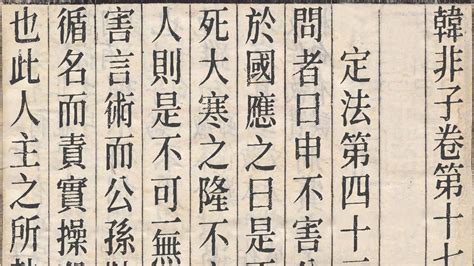 韓非子卷第十七
定法第四十三
問者曰申不害公
於國應之曰是
死大寒之隆不
人則是不可一無
害言術而公孫
循名而責實操
也此人主之所執